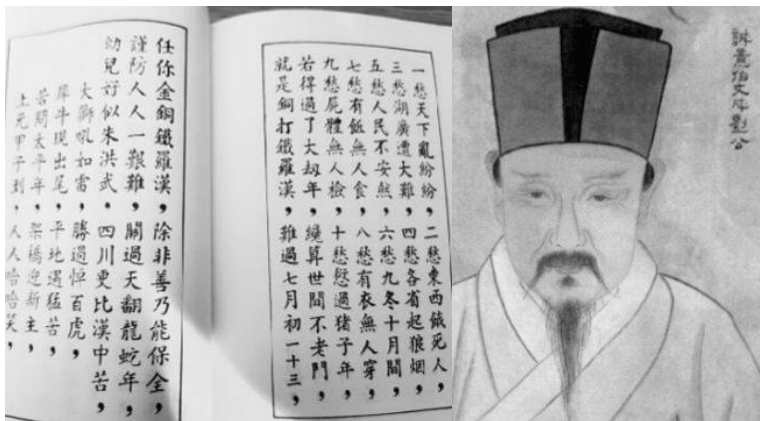 一愁天下亂紛紛，二愁東西餓死人，
三愁湖廣遭大難，四愁各省起狼烟，
五愁人民不安然，六愁九冬十月間，
七愁有飯無人食，八愁有衣無人穿，
九愁屍體無人檢，十愁愆過猪子年，
若得過了大刧年，纔算世間不老門，
就是銅打鐵羅漢，難過七月初一十三，
任你金銅鐵羅漢，除非善乃能保全，
謹防人人一艱難，關過天翻龍蛇年，
幼兒好似朱洪武，四川更比漢中苦，
大獅吼如雷，勝過悼百虎，
犀牛現出尾，平地遇猛若，
若問太平年，架橋迎新主，
上元甲子到，人人哈哈笑，
誠意伯文成劉公